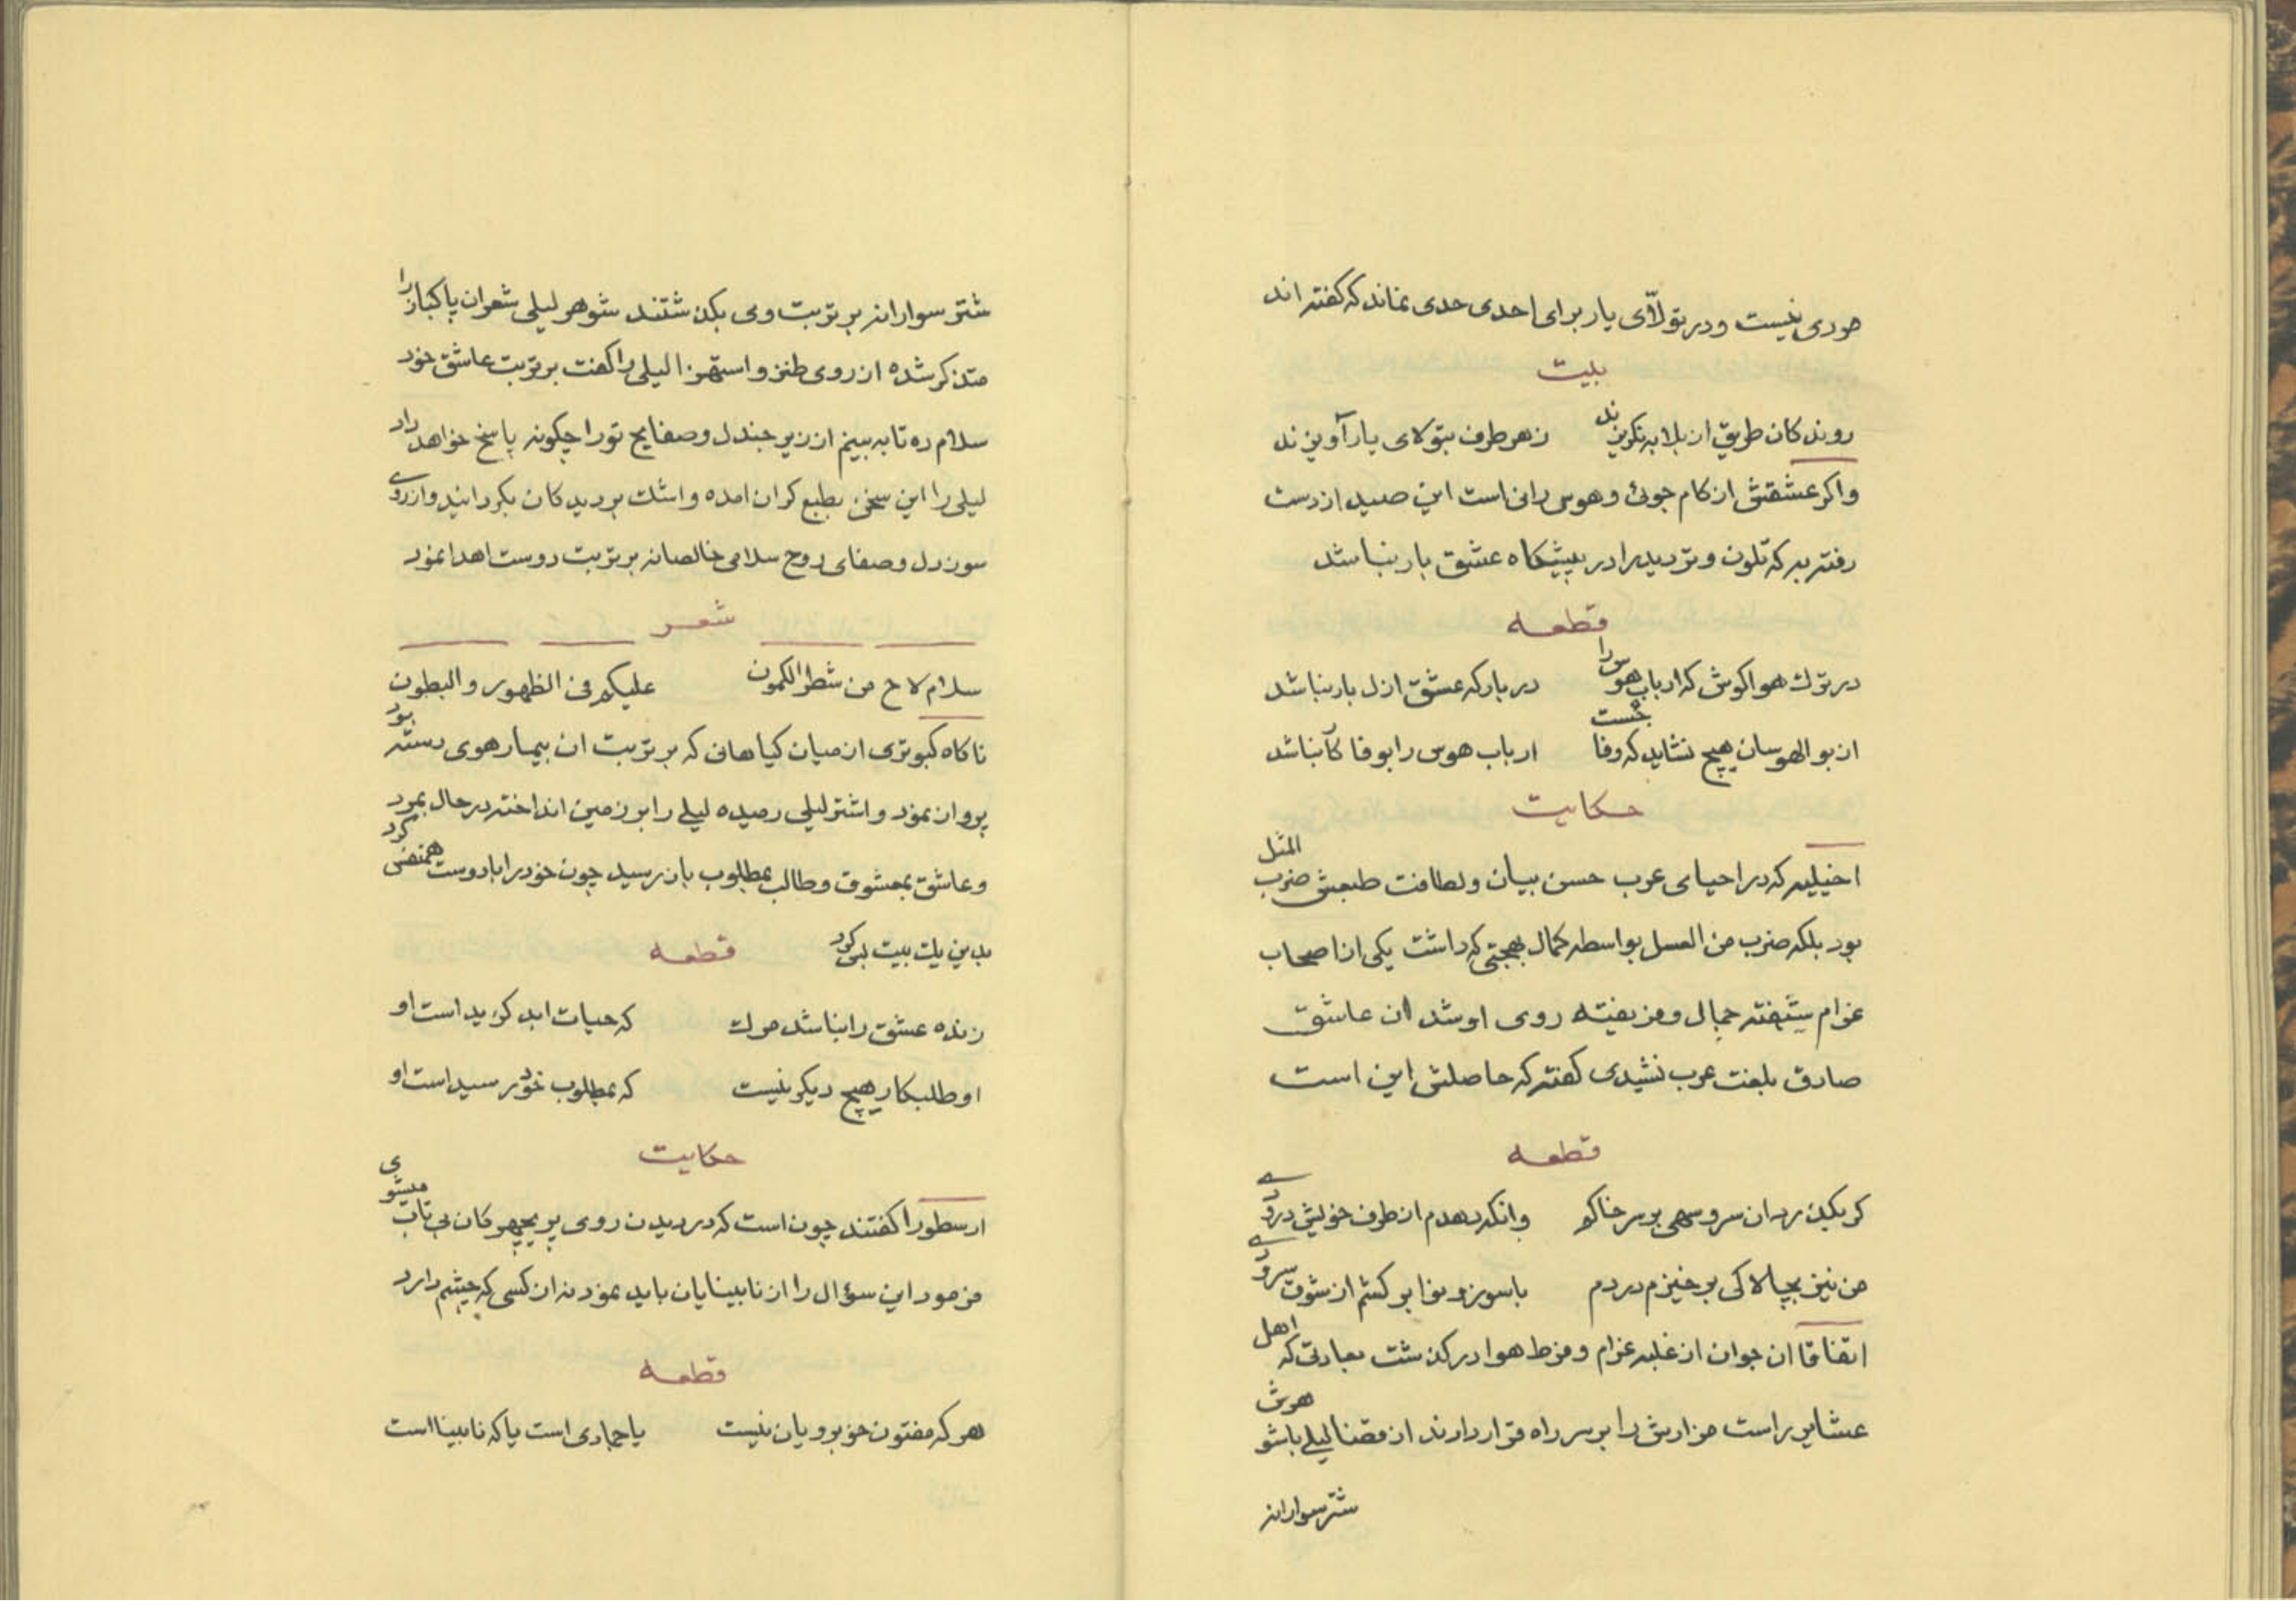 صوری نیست و در تولّای یار برای احدی حدی نماند که کفته اند
بیت
روندکان طریق از بلا به نکریزند زهر طرف بتولای یار آویزند
واکر عشقش از کام جوئ و هوس رانی است این صید از دست
رفته به که تلون و تردید را در پیشکاه عشق بار نباشد
قطعه
در ترك هوا کوش که ارباب هوس را در بارکه عشق ازل بار نباشد
از بوالهوسان هیچ نشاید که وفا جُست ارباب هوس را بوفا کار نباشد
حکایت
اخیلیه که در احیای عرب حسن بیان و لطافت طبعش ضرب المثل
بود بلکه ضرب من العسل بواسطه کمال بهجتی که داشت یکی از اصحاب
غرام شیفته جمال و فریفته روی او شد ان عاشق
صادق بلغت عرب نشیدی کفته که حاصلش این است
قطعه
کر بکذرد ان سرو سهی بر سر خاکم وانکه دهدم از طرف خویش درودے
من نیز بچالاکی برخیزم در دم با سوز و نوا بر کشم از شوق سرودے
اتفاقا ان جوان از غلبه غرام و فرط هوا درکذشت بعادتی که اهل
عشایر راست مزارش را بر سر راه قرار دادند از قضا لیلے با شوهرش
شتر سوارانه
شتر سوارانه بر تربت وی بکذشتند شوهر لیلی شعر ان پاکباز را
متذکر شده از روی طنز و استهزا لیلی را کفت بر تربت عاشق خود
سلام ده تا به بینم از زیر جندل و صفایح تو را چکونه پاسخ خواهد داد
لیلی را این سخن بطبع کران امده و اشك بر دیدکان بکردانید و از روے
سوز دل و صفای روح سلامی خالصانه بر تربت دوست اهدا نمود
شعر
سلام لاح من شطر الکمون علیکم فی الظهور و البطون
ناکاه کبوتری از میان کیاهانی که بر تربت ان بیمار هوی رسته بود
پرواز نمود و اشتر لیلی رمیده لیلے را بر زمین انداخته در حال بمرد
و عاشق بمعشوق و طالب بمطلوب باز رسید چون خود را با دوست همنفس کرد
بدین یك بیت بس کرد قطعه
زنده عشق را نباشد مرك که حیات ابد کزید است او
او طلبکار هیچ دیکر نیست که بمطلوب خود رسید است او
حکایت
ارسطو را کفتند چون است که در دیدن روی پریچهرکان بی تاب میشوی
فرمود این سؤال را از نابینایان باید نمود نه از کسی که چشم دارد
قطعه
هر که مفتون خوبرویان نیست یا جمادی است یا که نابینا است